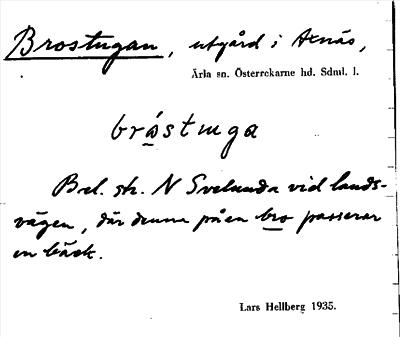 Brostugan, utgård i Axnäs,
Ärla sn. Österrekarne hd. Sdml. l.
bråstuga
Bel. str. N Svelunda vid lands-
vägen, där denna på en bro passerar
en bäck.
Lars Hellberg 1935.